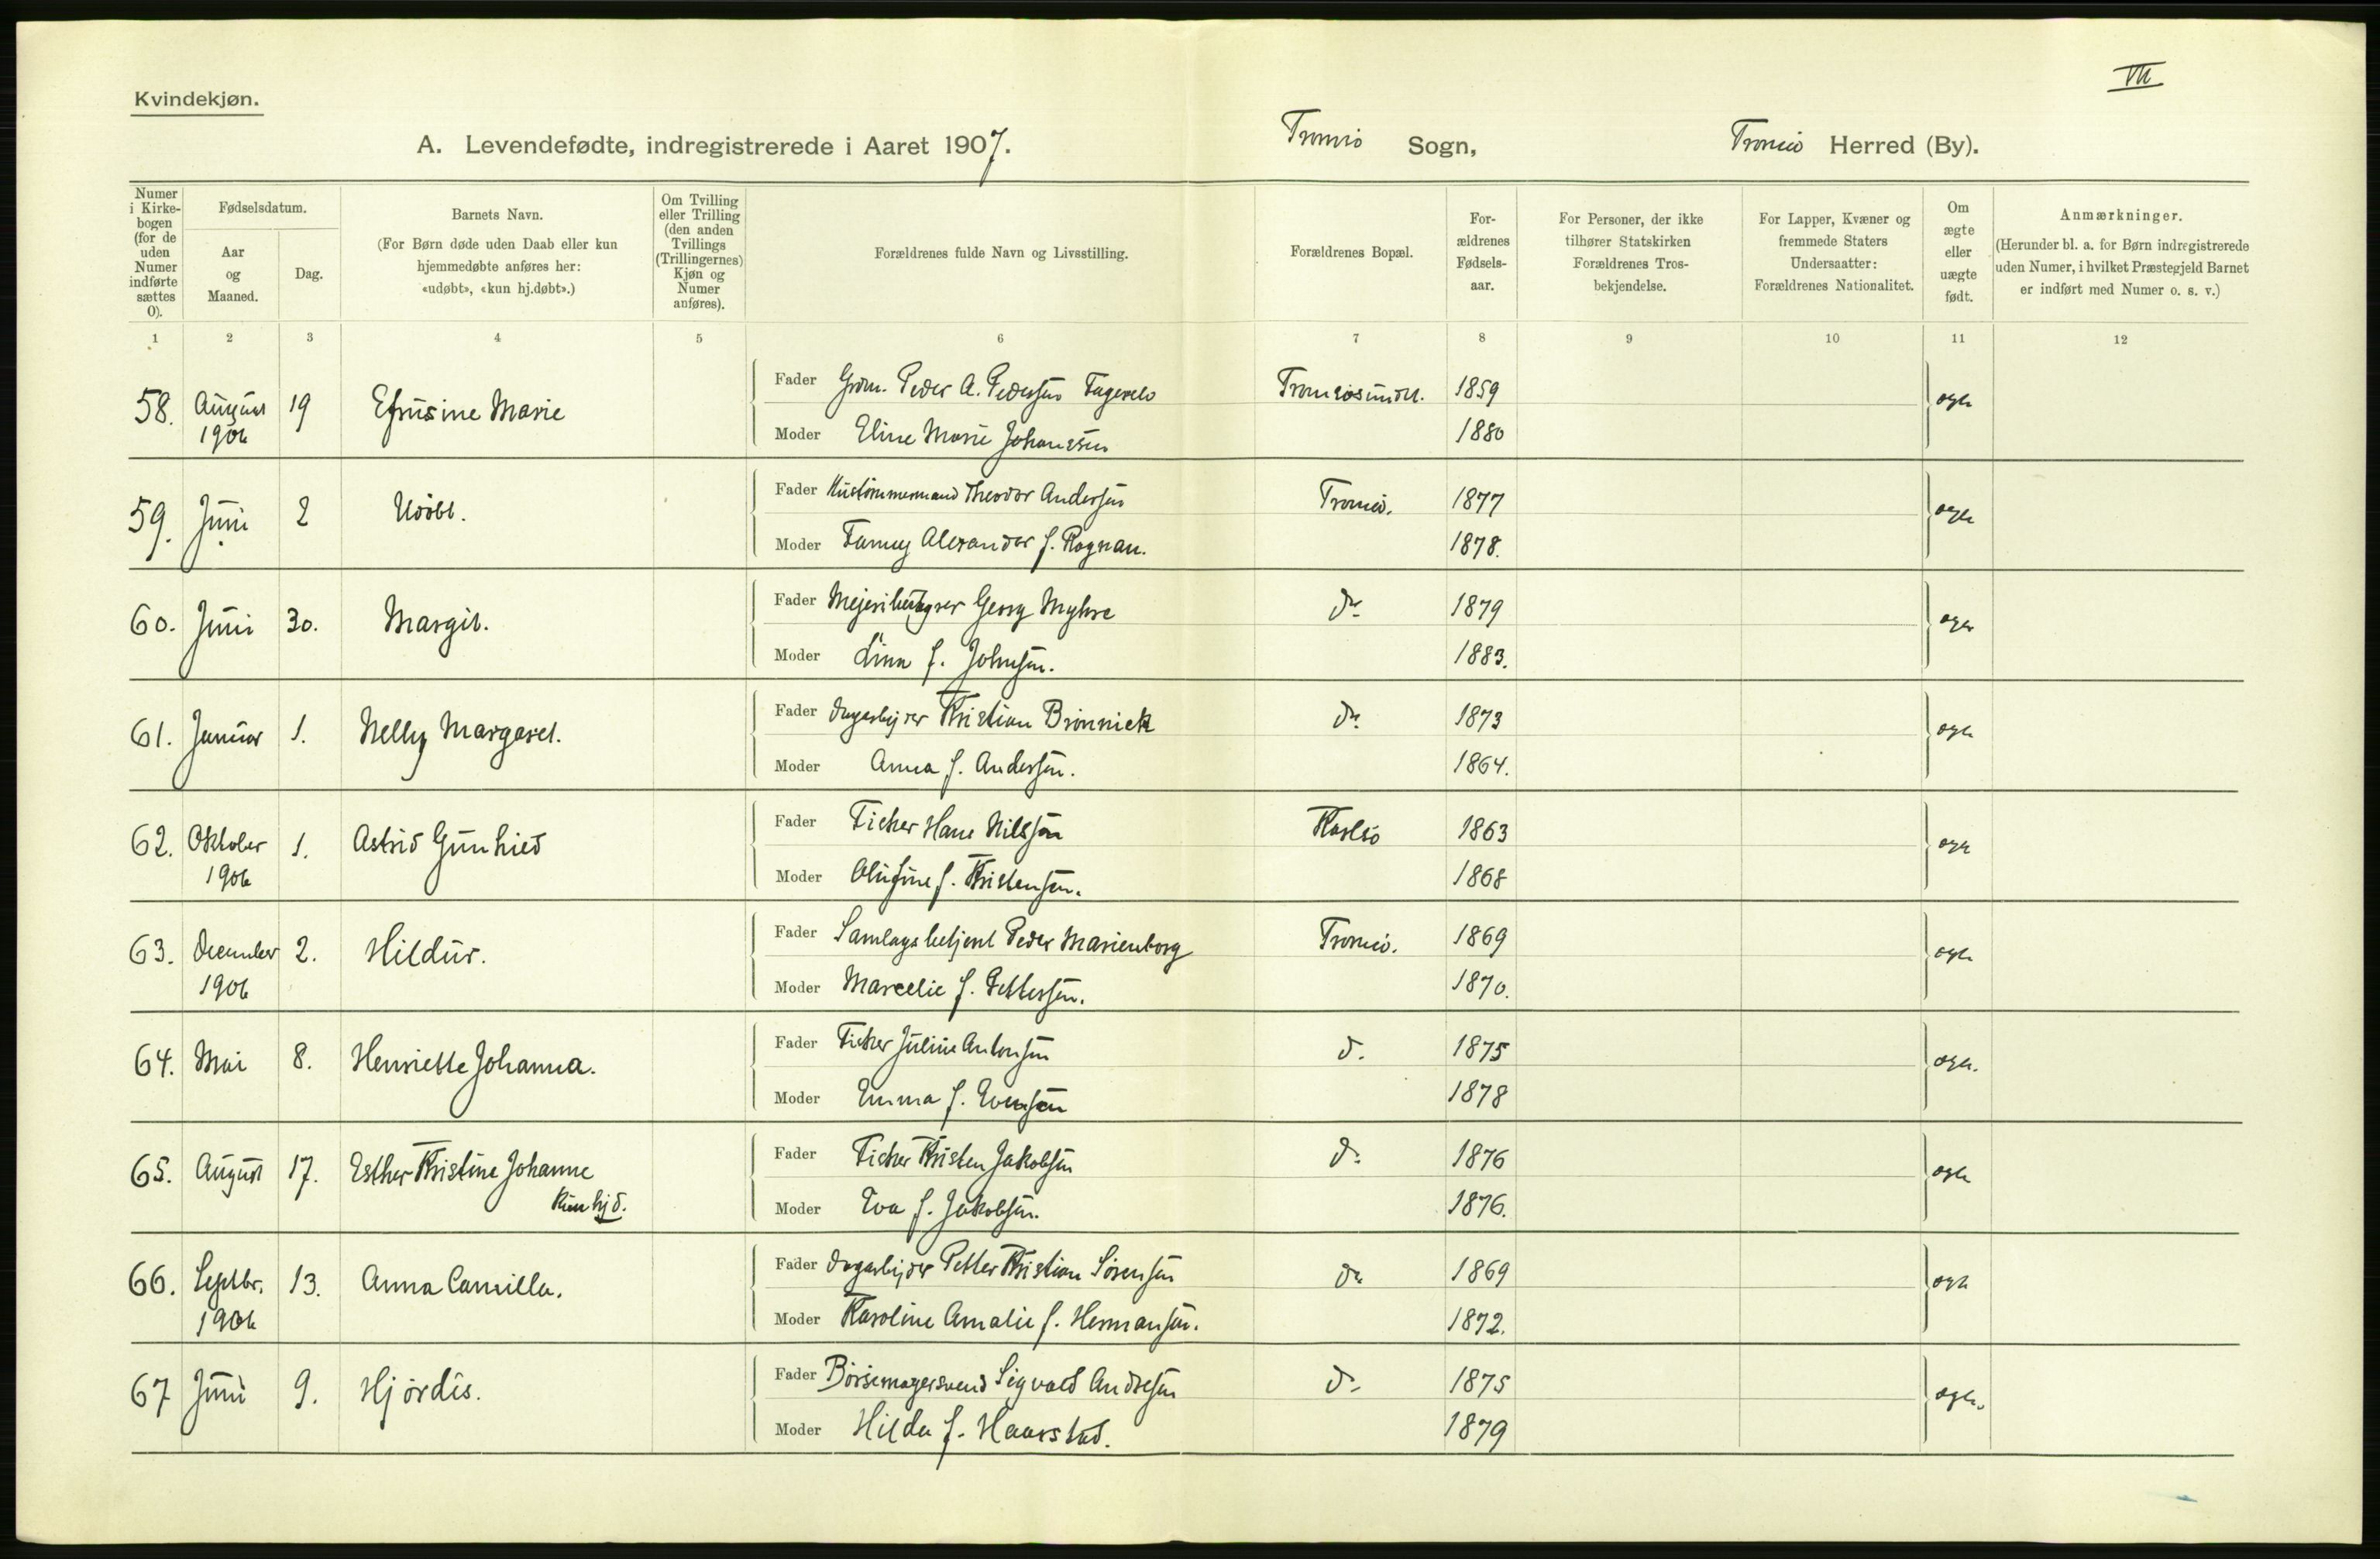 VII
Kvindekjøn.
A. Levendefødte, indregistrerede i Aaret 1907. Tromsø Sogn, Tromsø Herred (By).
Numer
i Kirke-
bogen
(for de
uden
Numer
indførte
sættes
0).
Fødselsdatum.
Aar
og
Maaned.
Dag.
Barnets Navn.
(For Børn døde uden Daab eller kun
hjemmedøbte anføres her:
«udøbt», «kun hj.døbt».)
Om Tvilling
eller Trilling
(den anden
Tvillings
(Trillingernes)
Kjøn og
Numer
anføres).
Forældrenes fulde Navn og Livsstilling.
Forældrenes Bopæl.
For-
ældrenes
Fødsels-
aar.
For Personer, der ikke
tilhører Statskirken
Forældrenes Tros-
bekjendelse.
For Lapper, Kvæner og
fremmede Staters
Undersaatter:
Forældrenes Nationalitet.
Om
ægte
eller
uægte
født.
Anmærkninger.
(Herunder bl. a. for Børn indregistrerede
uden Numer, i hvilket Præstegjeld Barnet
er indført med Numer o. s. v.)
1 2 3 4 5 6 7 8 9 10 11 12
Fader Grdm. Peder A. Pedersen Tromsøsundet. 1859
58. August 19 Efrusine Marie ægte
1906
Moder Eline Marie Johanssen 1880
Fader Hustømmermand Theodor Andersen Tromsø. 1877
59. Juni 2 Udøbt. ægte
Moder Fanny Alexander f. Rognan. 1878.
Fader Mejeribestyrer Georg Myhre do 1879
60. Juni 30. Margit. ægte
Moder Lina f. Johnsen. 1883.
Fader Dagarbejder Kristian Brønnick do 1873
61. Januar 1. Nelly Margaret. ægte
Moder Anna f. Andersen. 1864.
Fader Fisker Hans Nilssen Karlsø 1863
62. Oktober 1. Astrid Gunhild ægte
1906
Moder Olufine f. Kristensen. 1868
Fader Samlagsbetjent Peder Marienborg Tromsø. 1869
63. December 2. Hildur. ægte
1906
Moder Marcelie f. Pettersen. 1870.
Fader Fisker Julius Antonsen d. 1875
64. Mai 8. Henriette Johanna. ægte.
Moder Emma f. Evensen 1878
Fader Fisker Kristen Jakobsen d. 1876
65. August 17. Esther Kristine Johanne ægte
kun hjd.
Moder Eva f. Jakobsen. 1876.
Fader Dagarbejder Petter Kristian Sørensen do 1869
66. Septbr. 13. Anna Camilla. ægte
1906
Moder Karoline Amalie f. Hermansen. 1872.
Fader Børsemagersvend Sigvald Andresen d. 1875
67 Juni 9. Hjørdis. ægte.
Moder Hilda f. Haarstad. 1879